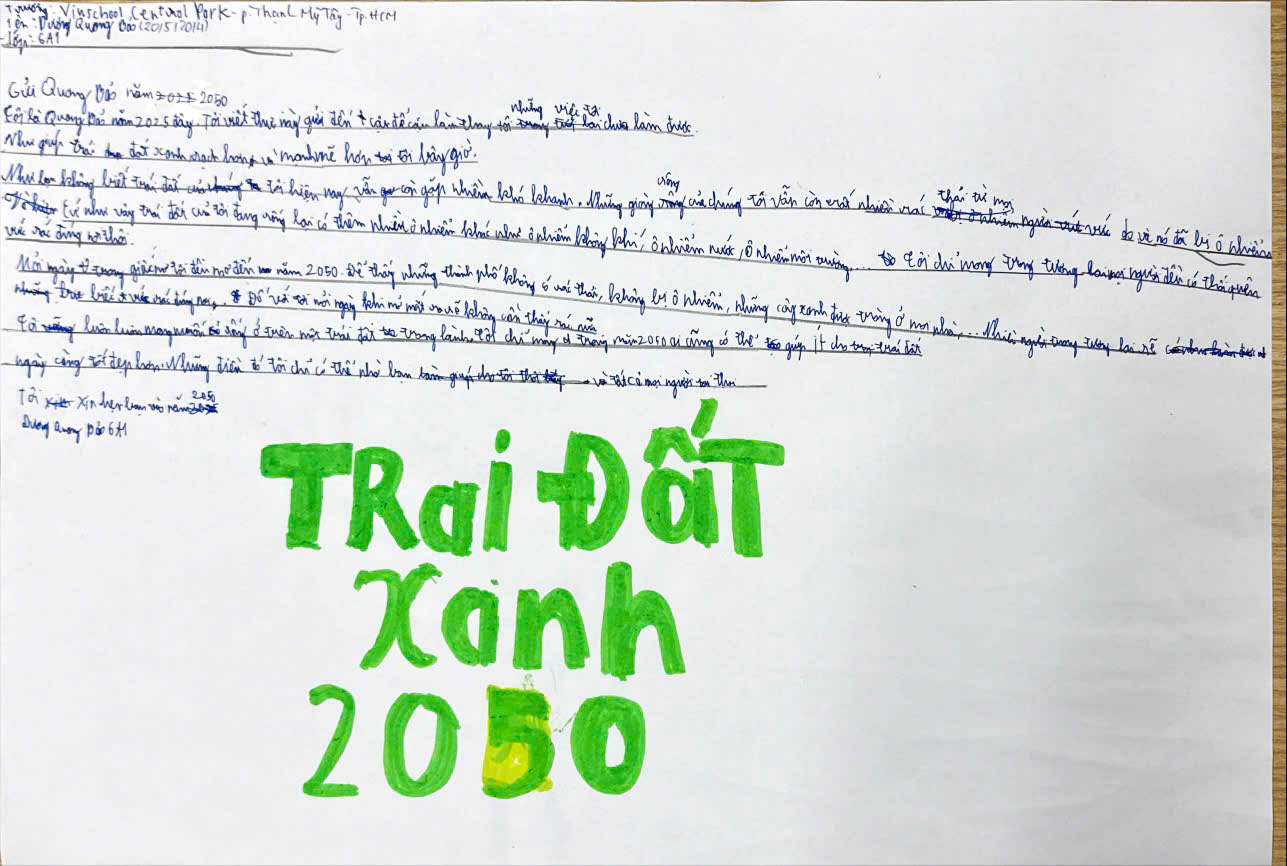 Trường: Vinschool Central Park - p. Thạnh Mỹ Tây - Tp. HCM
Tên: Dương Quang Bảo (20/5/2014)
Lớp: 6A1
Gửi Quang Bảo năm 2025 2050
Tôi là Quang Bảo năm 2025 đây. Tôi viết thư này gửi đến cậu để cậu làm thay tôi những việc tôi lại chưa làm được.
Như giúp trái đất xanh sạch hơn và mạnh mẽ hơn tôi bây giờ.
không biết trái đất tôi hiện nay vẫn còn gặp nhiều khó khanh. Những giòng sông của chúng tôi vẫn còn rất nhiều rác thải từ mọi người vức do vì nó đã bị ô nhiễm
Cứ như vậy trái đất của tôi đang sống lại có thêm nhiều ô nhiễm khác như ô nhiễm không khí, ô nhiễm nước, ô nhiễm môi trường... Tôi chỉ mong trong tương lai mọi người đều có thói quên
vức rác đúng nơi thôi.
Mỗi ngày trong giấc mơ tôi đều mơ đến năm 2050. Để thấy những thành phố không có rác thải, không bị ô nhiễm, những cây xanh được trồng ở mọi nhà,... người trong tương lai sẽ
biết vức rác đúng nơi, Đối với tôi mỗi ngày khi mở mắt ra sẽ không còn thấy rác nữa
Tôi luôn luôn mong muốn sống ở trên một trái đất trong lành. Tôi chỉ mong trong năm 2050 ai cũng có thể giúp ít cho trái đất
ngày càng tốt đẹp hơn. Những điều đó tôi chỉ có thể nhờ bạn và tất cả mọi người thôi
Tôi xin hẹn bạn vào năm 2050
Dương Quang Bảo 6A1
TRai ĐấT
Xanh
2050